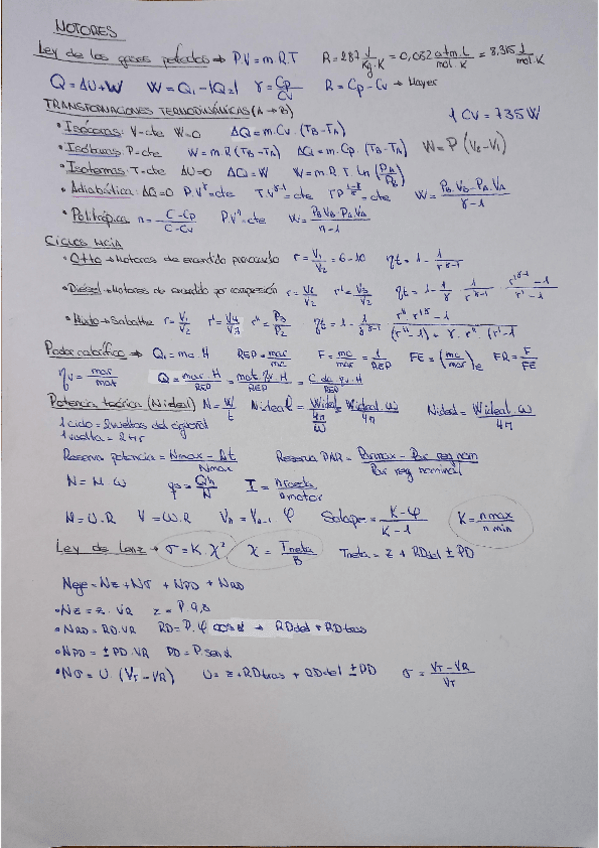 MOTORES
Ley de los gases perfectos → P.V = m.R.T R = 287 J/Kg.K = 0,082 atm.L/mol.K = 8,315 J/mol.K
Q = ΔU + W W = Q1 - |Q2| γ = Cp/Cv R = Cp - Cv → Mayer
TRANSFORMACIONES TERMODINÁMICAS (A → B) 1 CV = 735 W
• Isócoras: V-cte W=0 ΔQ = m.Cv.(TB-TA)
• Isóbaras: P-cte W = m.R(TB-TA) ΔQ = m.Cp.(TB-TA) W = P(V2-V1)
• Isotermas: T-cte ΔU=0 ΔQ=W W = m.R.T.Ln(PA/PB)
• Adiabática: ΔQ=0 P.V^γ=cte T.V^γ-1=cte T.P^(1-γ/γ)=cte W = PB.VB-PA.VA/γ-1
• Politrópica n = C-Cp/C-Cv P.V^n=cte W = PB.VB-PA.VA/n-1
CICLOS MCIA
• Otto → Motores de encendido provocado r = V1/V2 = 6-10 ηt = 1 - 1/r^γ-1
• Diésel → Motores de encendido por compresión r = V1/V2 r' = V3/V2 ηt = 1 - 1/γ . 1/r^γ-1 . r'^γ-1/r'-1
• Mixto → Sabathe r = V1/V2 r' = V4/V3 r'' = P3/P2 ηt = 1 - 1/r^γ-1 . r''.r'^γ-1/(r''-1)+γ.r''.(r'-1)
Poder calorífico → Q1 = mc.H REP = mar/mc F = mc/mar = 1/REP FE = (mc/mar)e FR = F/FE
ηv = mar/mat Q = mar.H/REP = mat.ηv.H/REP = C.de.ηv.H/REP
Potencia teórica (N ideal) N = W/t N ideal = W ideal/4π/ω = W ideal.ω/4π N ideal = W ideal.ω/4π
1 ciclo = 2 vueltas del cigüeñal
1 vuelta = 2πr
Reserva potencia = Nmax - Nt/Nmax Reserva PAR = Par max - Par reg nom/Par reg nominal
N = M.ω I = n rueda/n motor
N = U.R V = ω.R Vn = Vn-1 φ Solape = K-φ/K-1 K = n max/n min
σ = K.χ² χ = Tneta/B Tneta = z + RDdel ± PD
Neje = Nz + Nσ + NPD + NRD
• Nz = z.VR
• NRD = RD.VR RD = P.φ cos α → RDdel + RDtras
• NPD = ± PD.VR PD = P.sen α
• Nσ = U.(VT-VR) U = z + RDtras + RDdel ± PD σ = VT-VR/VT